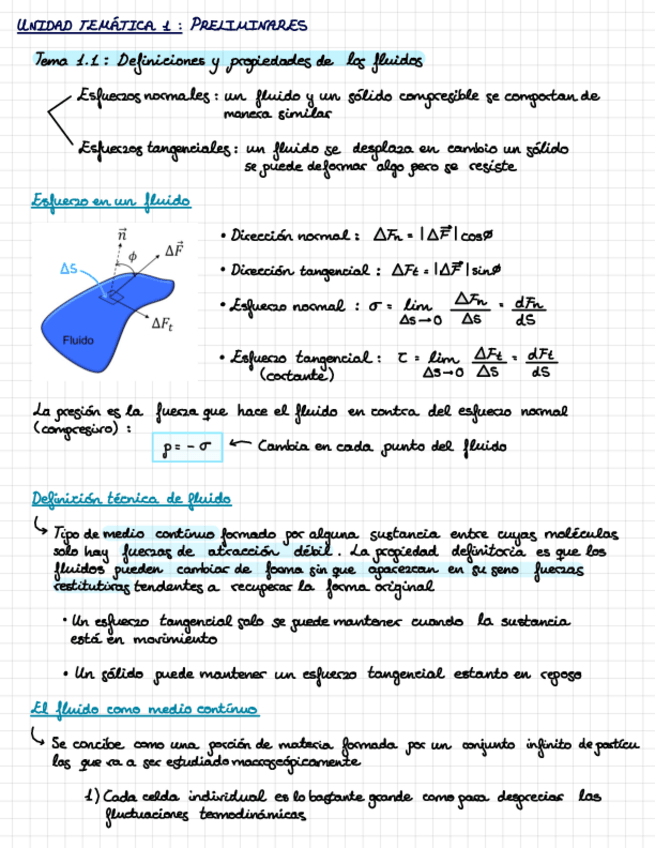 UNIDAD TEMÁTICA 1 : PRELIMINARES
Tema 1.1 : Definiciones y propiedades de los fluidos
Esfuerzos normales : un fluido y un sólido compresible se comportan de
manera similar
Esfuerzos tangenciales : un fluido se desplaza en cambio un sólido
se puede deformar algo pero se resiste
Esfuerzo en un fluido
n⃗
ϕ
ΔF⃗
ΔS
ΔFt
Fluido
• Dirección normal : ΔFn = |ΔF⃗| cosø
• Dirección tangencial : ΔFt = |ΔF⃗| sinø
• Esfuerzo normal : σ = lim ΔS→0 ΔFn/ΔS = dFn/dS
• Esfuerzo tangencial : τ = lim ΔS→0 ΔFt/ΔS = dFt/dS
(cortante)
La presión es la fuerza que hace el fluido en contra del esfuerzo normal
(compresivo) :
p = - σ ← Cambia en cada punto del fluido
Definición técnica de fluido
↳ Tipo de medio contínuo formado por alguna sustancia entre cuyas moléculas
solo hay fuerzas de atracción débil. La propiedad definitoria es que los
fluidos pueden cambiar de forma sin que aparezcan en su seno fuerzas
restitutivas tendentes a recuperar la forma original
• Un esfuerzo tangencial solo se puede mantener cuando la sustancia
está en movimiento
• Un sólido puede mantener un esfuerzo tangencial estanto en reposo
El fluido como medio contínuo
↳ Se concibe como una porción de materia formada por un conjunto infinito de partícu
las que va a ser estudiado macroscópicamente
1) Cada celda individual es lo bastante grande como para despreciar las
fluctuaciones termodinámicas